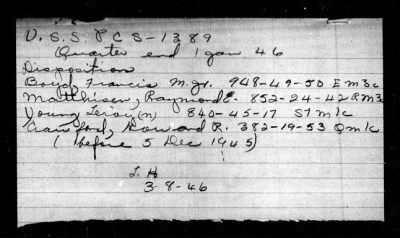 U.S.S. PCS-1389
Quarter end 1 Jan 46
Disposition
Boyd, Francis M. Jr. 948-49-50 EM3c
Matthisen, Raymond E. 852-24-42 RM3
Young Leroy (n) 840-45-17 STM/c
Crawford, Howard R. 382-19-53 QM/c
(before 5 Dec 1945)
L.H
3-8-46